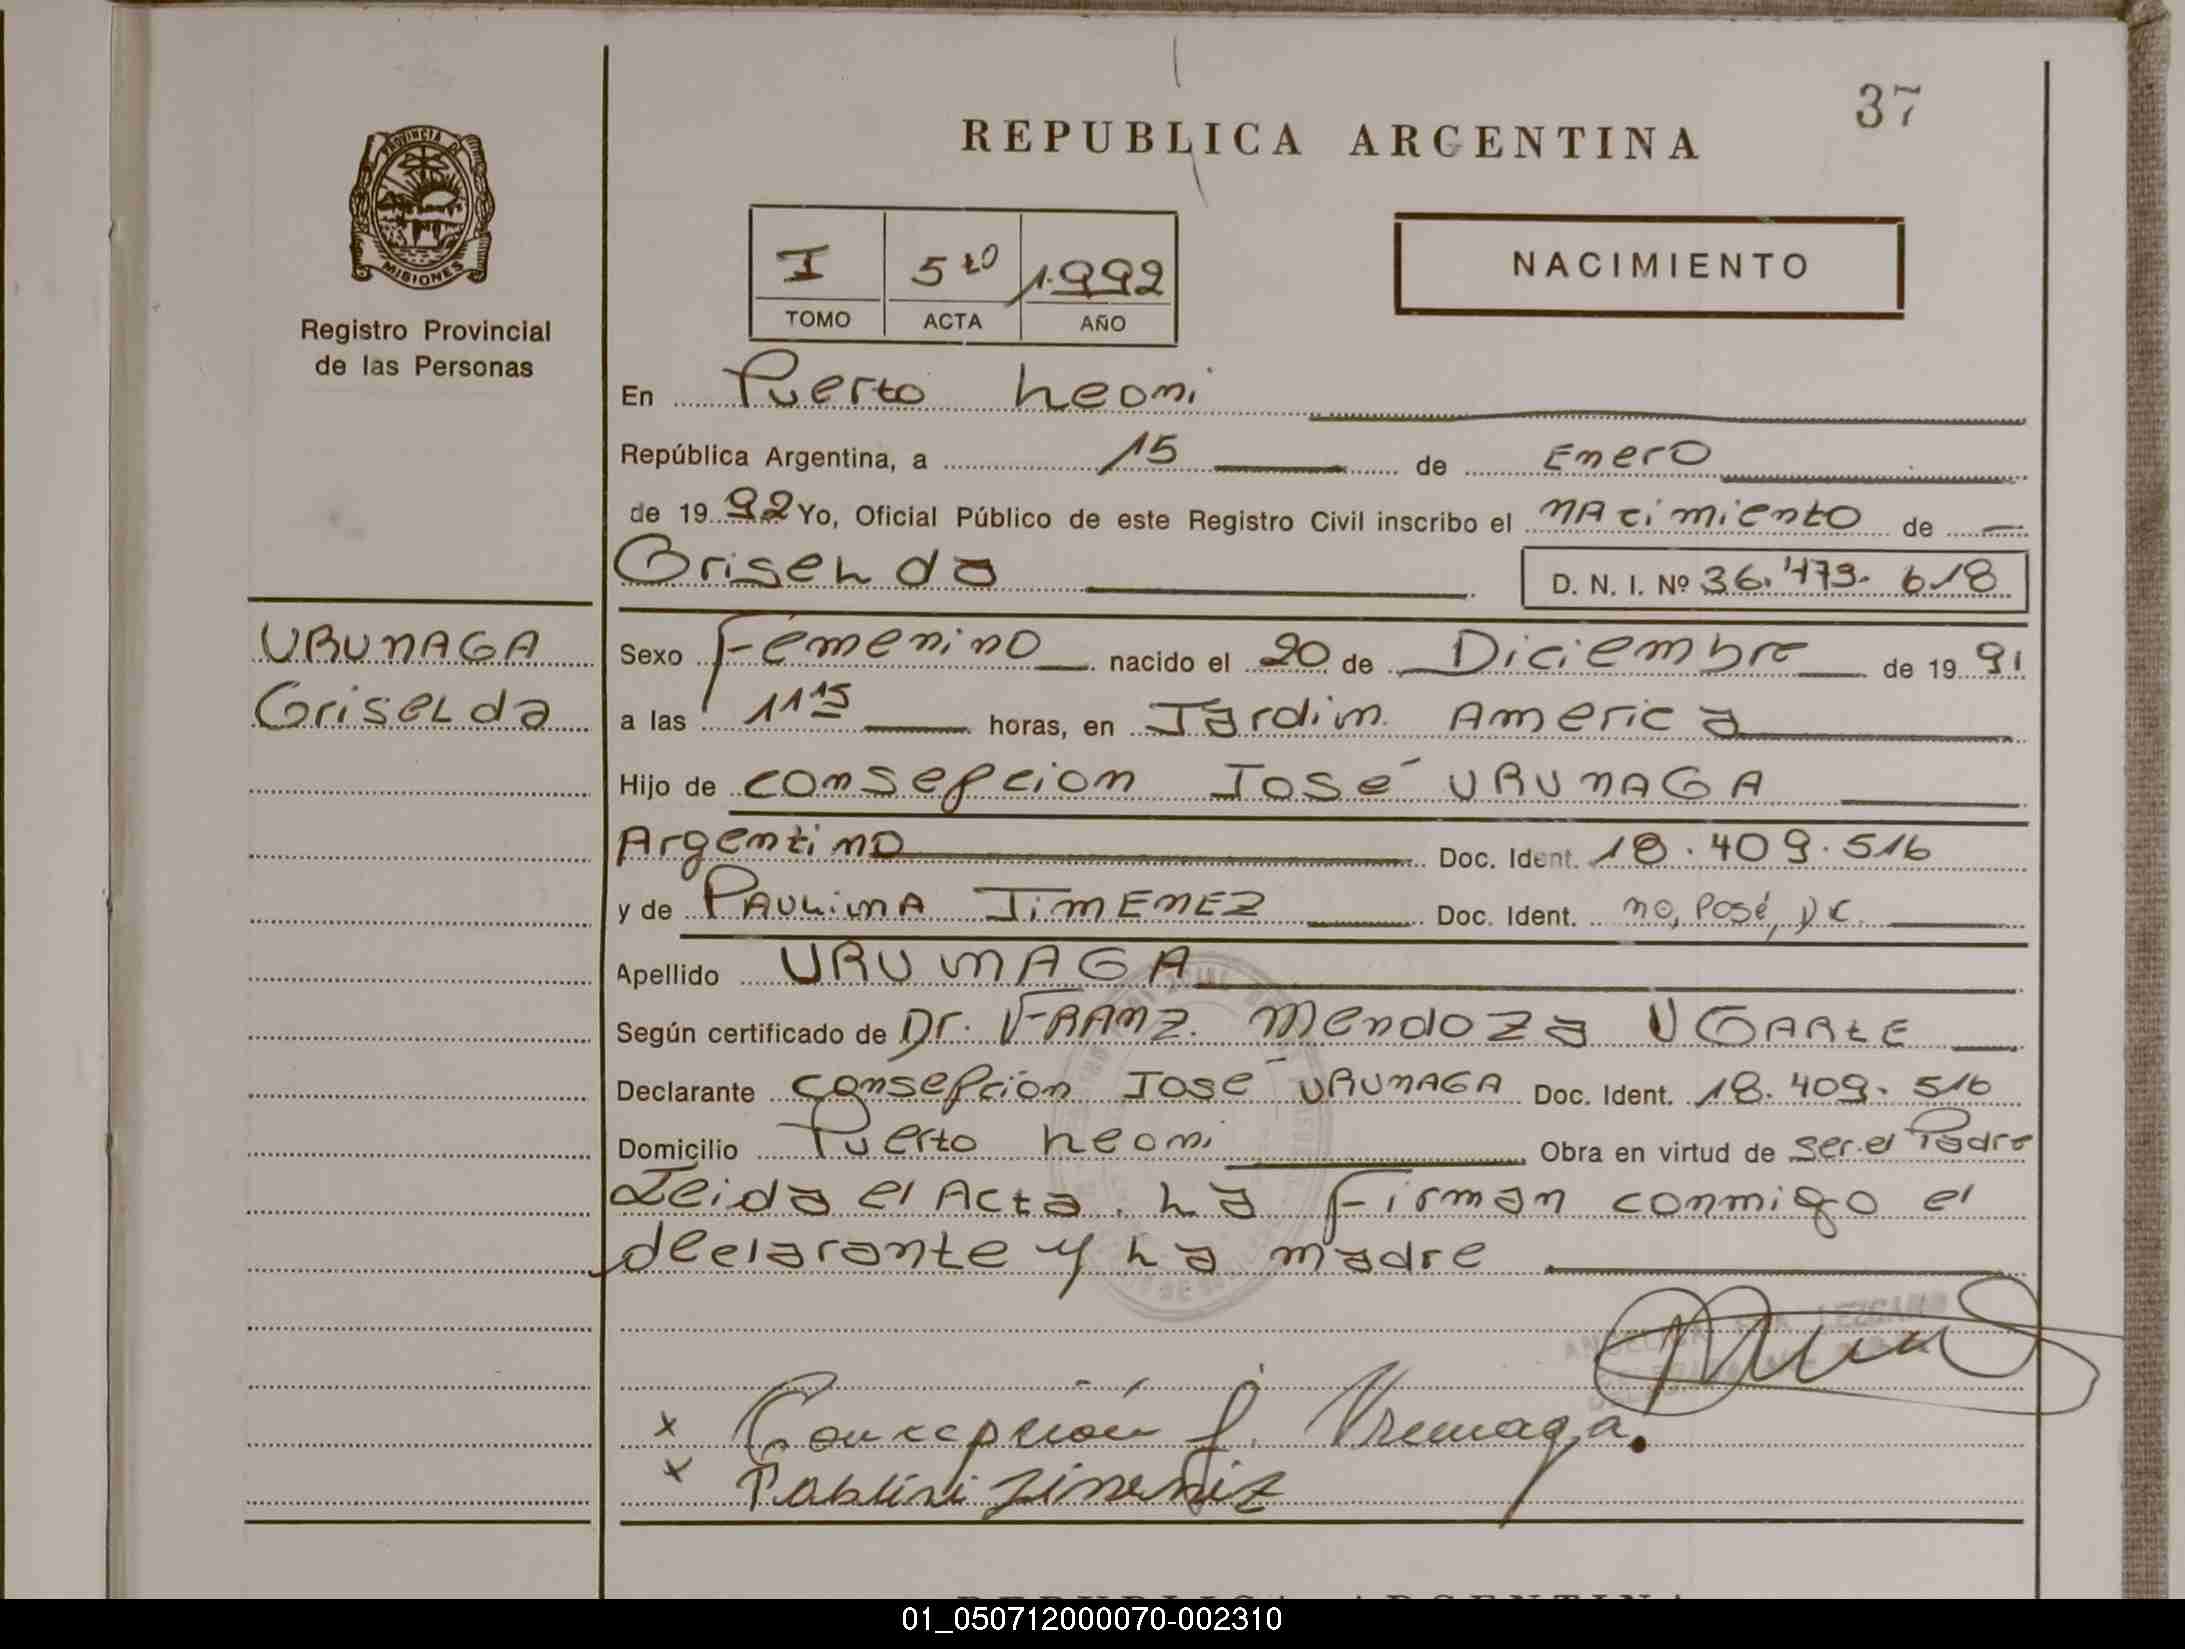 37
REPUBLICA ARGENTINA
PROVINCIA DE
MISIONES
Registro Provincial
de las Personas
I 5to 1.992
TOMO ACTA AÑO
NACIMIENTO
En Puerto Leoni
República Argentina, a 15 de Enero
de 1992 Yo, Oficial Público de este Registro Civil inscribo el nacimiento de
Griselda
D. N. I. Nº 36.473.618
URUNAGA
Griselda
Sexo Femenino nacido el 20 de Diciembre de 1991
a las 11 15 horas, en Jardin America
Hijo de consepcion José URUNAGA
Argentino Doc. Ident. 18.409.516
y de PAULINA JIMENEZ Doc. Ident. no, Posé,
Apellido URUNAGA
Según certificado de Dr. FRANZ. Mendoza UGARTE
Declarante consepcion José URUNAGA Doc. Ident. 18.409.516
Domicilio Puerto Leoni Obra en virtud de ser el Padre
Leida el Acta. La Firman conmigo el
declarante y La madre
LEZCANO
x Concepción J. Urunaga.
x Pablini Jimeniz
REPUBLICA ARGENTINA
01_050712000070-002310